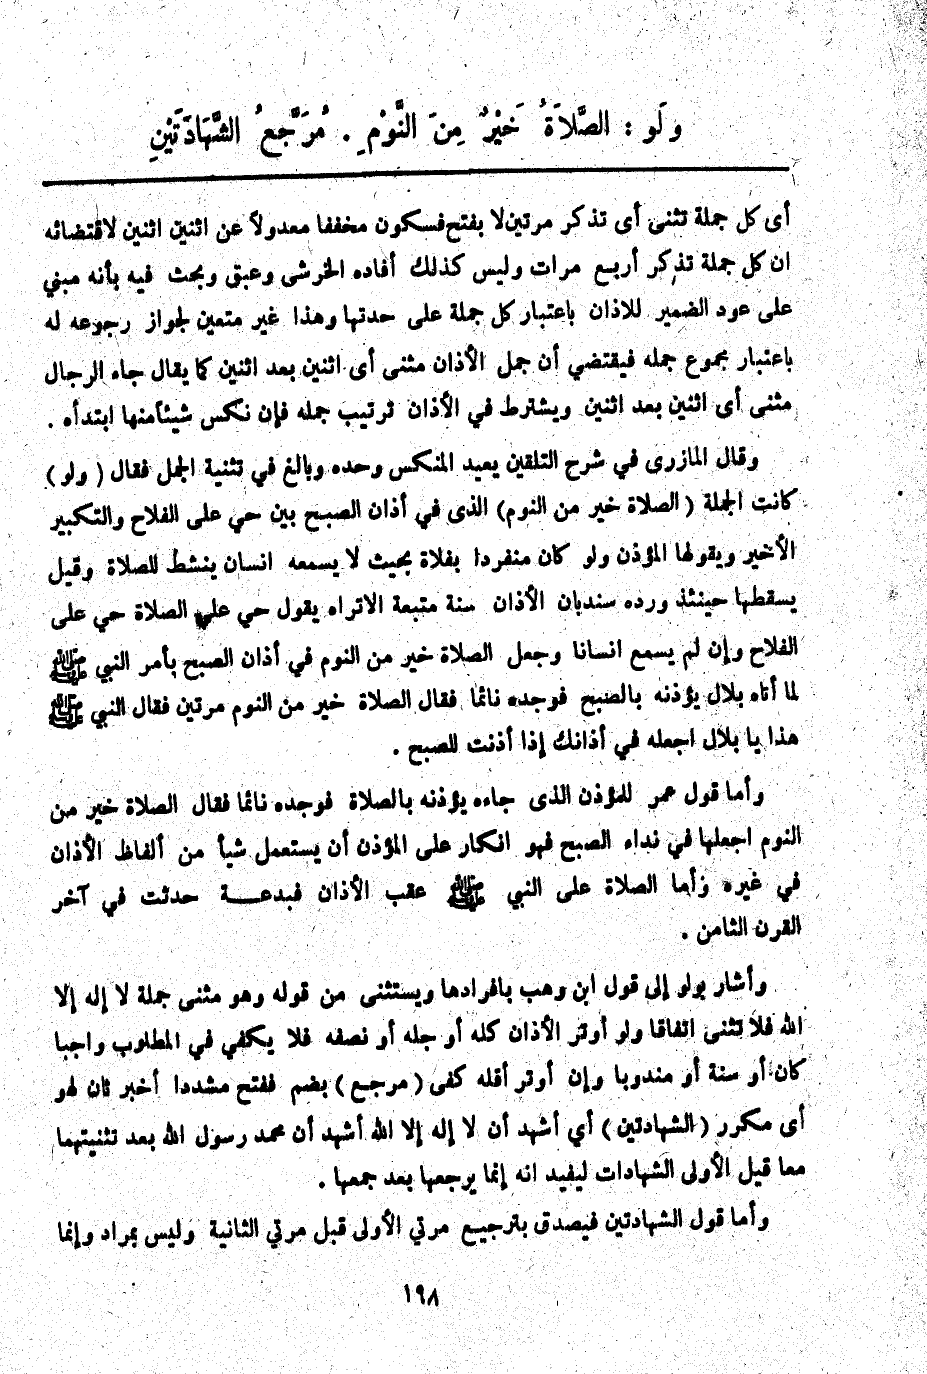 وَلَو : الصَّلاَةُ خَيْرٌ مِنَ النَّوْمِ . مُرَجَّعُ الشَّهَادَتَيْنِ
أى كل جملة تثنى أى تذكر مرتين لا بفتح فسكون مخففا معدولاً عن اثنين اثنين لاقتضائه
ان كل جملة تذكر أربع مرات وليس كذلك أفاده الخرشى وعبق وبحث فيه بأنه مبني
على عود الضمير للاذان باعتبار كل جملة على حدتها وهذا غير متعين لجواز رجوعه له
باعتبار مجموع جمله فيقتضي أن جمل الأذان مثنى أى اثنين بعد اثنين كما يقال جاء الرجال
مثنى أى اثنين بعد اثنين ويشترط في الأذان ترتيب جمله فإن نكس شيئاً منها ابتدأه .
وقال المازرى في شرح التلقين يعيد المنكس وحده وبالغ في تثنية الجمل فقال ( ولو )
كانت الجملة ( الصلاة خير من النوم ) الذى في أذان الصبح بين حي على الفلاح والتكبير
الأخير ويقولها المؤذن ولو كان منفردا بفلاة بحيث لا يسمعه انسان ينشط للصلاة وقيل
يسقطها حينئذ ورده سندبان الأذان سنة متبعة الاتراه يقول حي على الصلاة حي على
الفلاح وإن لم يسمع انسانا وجعل الصلاة خير من النوم في أذان الصبح بأمر النبي ﷺ
لما أتاه بلال يؤذنه بالصبح فوجده نائما فقال الصلاة خير من النوم مرتين فقال النبي ﷺ
هذا يا بلال اجعله في أذانك إذا أذنت للصبح .
وأما قول عمر للمؤذن الذى جاءه يؤذنه بالصلاة فوجده نائما فقال الصلاة خير من
النوم اجعلها في نداء الصبح فهو انكار على المؤذن أن يستعمل شيأ من ألفاظ الأذان
في غيره وأما الصلاة على النبي ﷺ عقب الأذان فبدعة حدثت في آخر
القرن الثامن .
وأشار بولو إلى قول ابن وهب بافرادها ويستثنى من قوله وهو مثنى جملة لا إله إلا
الله فلا تثنى اتفاقا ولو أوتر الأذان كله أو جله أو نصفه فلا يكفي في المطلوب واجبا
كان أو سنة أو مندوبا وإن أوتر أقله كفى ( مرجع ) بضم ففتح مشددا أخبر ثان لهو
أى مكرر ( الشهادتين ) أي أشهد أن لا إله إلا الله أشهد أن محمد رسول الله بعد تثنيتهما
معا قبل الأولى الشهادات ليفيد انه إنما يرجعها بعد جمعها .
وأما قول الشهادتين فيصدق بترجيع مرتي الأولى قبل مرتي الثانية وليس بمراد وإنما
١٩٨